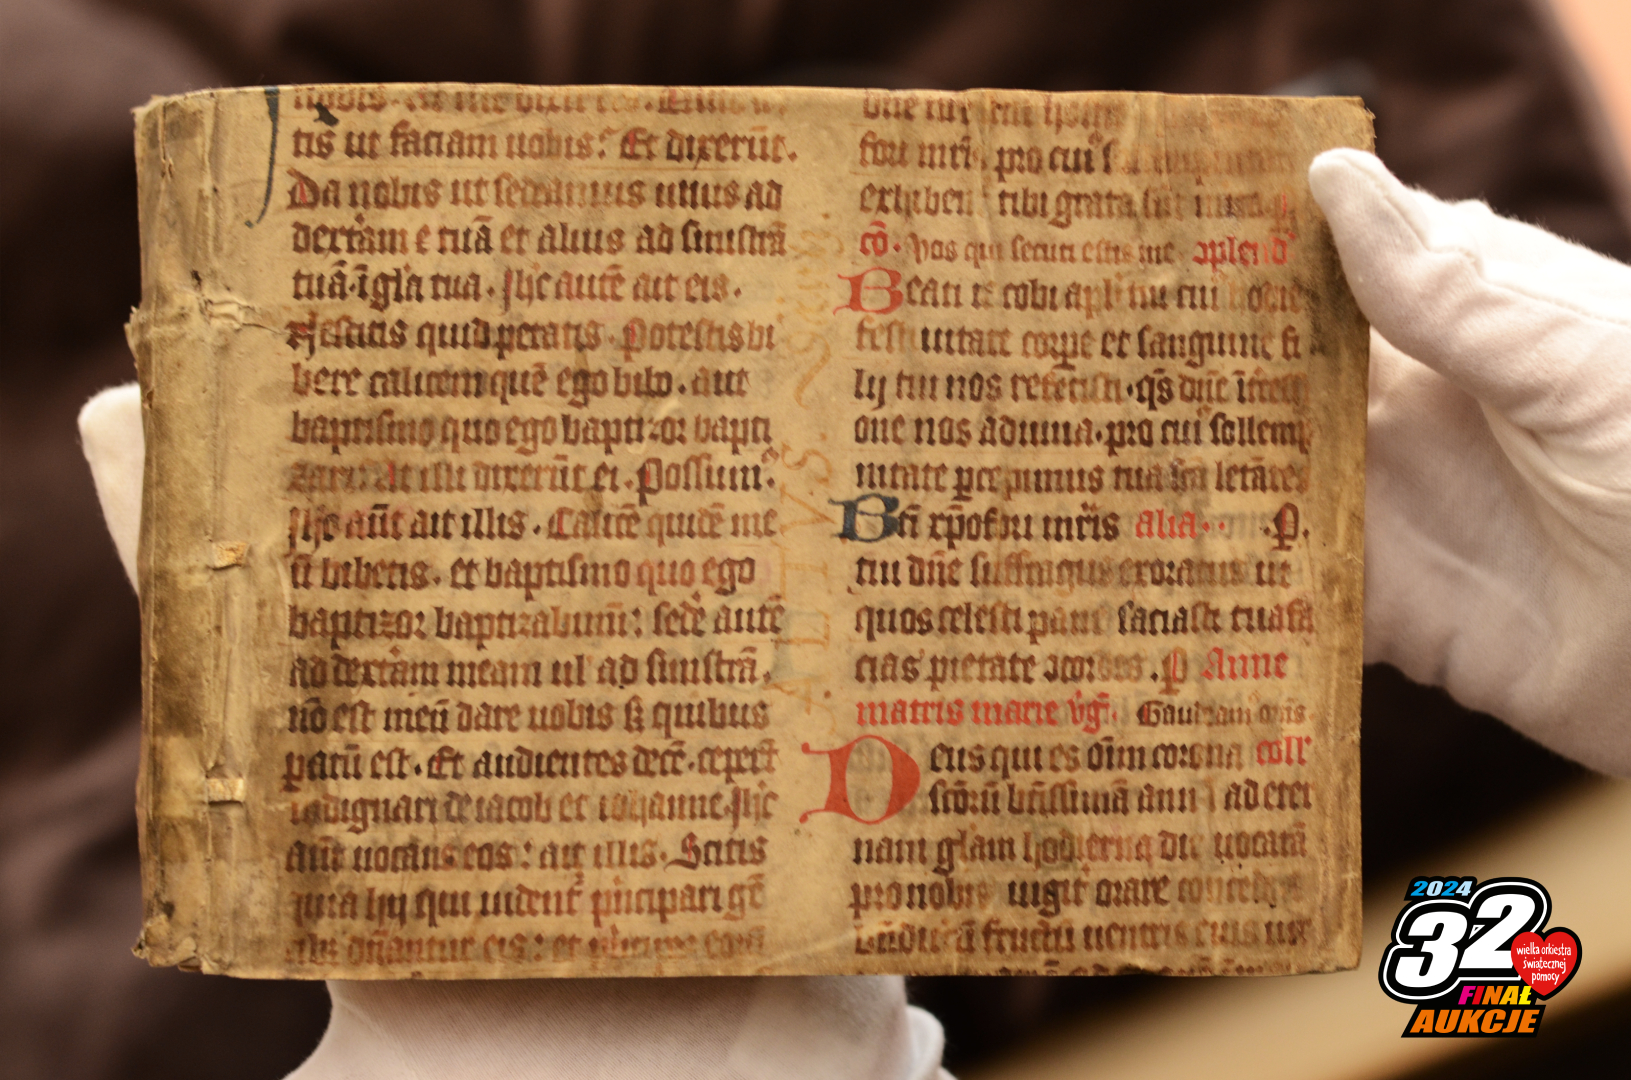 tis ut faciam uobis? Et dixerūt.
Da nobis ut sedeamus unus ad
dextam ⁊ tuā et alius ad sinistrā
tuā ī gl̄a tua. Ihc autē ait eis.
Nescitis quid petatis. Potestis bi
bere calicem quē ego bibo. aut
baptismo quo ego baptizor bapti
zari. At illi dixerūt ei. Possum⁹.
Ihc aūt ait illis. Calicē quidē me
bibetis. et baptismo quo ego
baptizor baptizabimī: sedē autē
ad dextam meam ul' ad sinistrā.
nō est meū dare uobis ſꝫ quibus
patū est. Et audientes decē. ceperūt
indignari de iacob et iohanne. Ihc
aūt uocans eos: ait illis. Scitis
quia hij qui uident̄ p̄ncipari gē
tib⁹ dn̄antur eis: et
pro cui⁹
exhiben tibi grata
cō. Vos qui secuti estis me ꝯplend'
Beati iacobi apl̄i tui cui
festiuitate corpe et sanguine fi
lij tui nos refecisti. q̄s dn̄e
one nos adiuua. pro cui⁹ sollemp
nitate pcepimus tua sc̄a letātes
Bt̄i xp̄ofori mr̄is alia P.
tui dn̄e suffragiis exoratus ut
quos celesti pane saciasti tua fa
cias pietate P Anne
matris marie v̄g. Gaudeam⁹ om̄s
Deus qui es om̄m corona coll'
sc̄orū bt̄issimā ad eter
nam gl̄am hodierna die uocatā
pro nobis iugit̄ orare
fructū uentris
ADIVS
2024
32
wielka orkiestra
świątecznej
pomocy
FINAŁ
AUKCJE